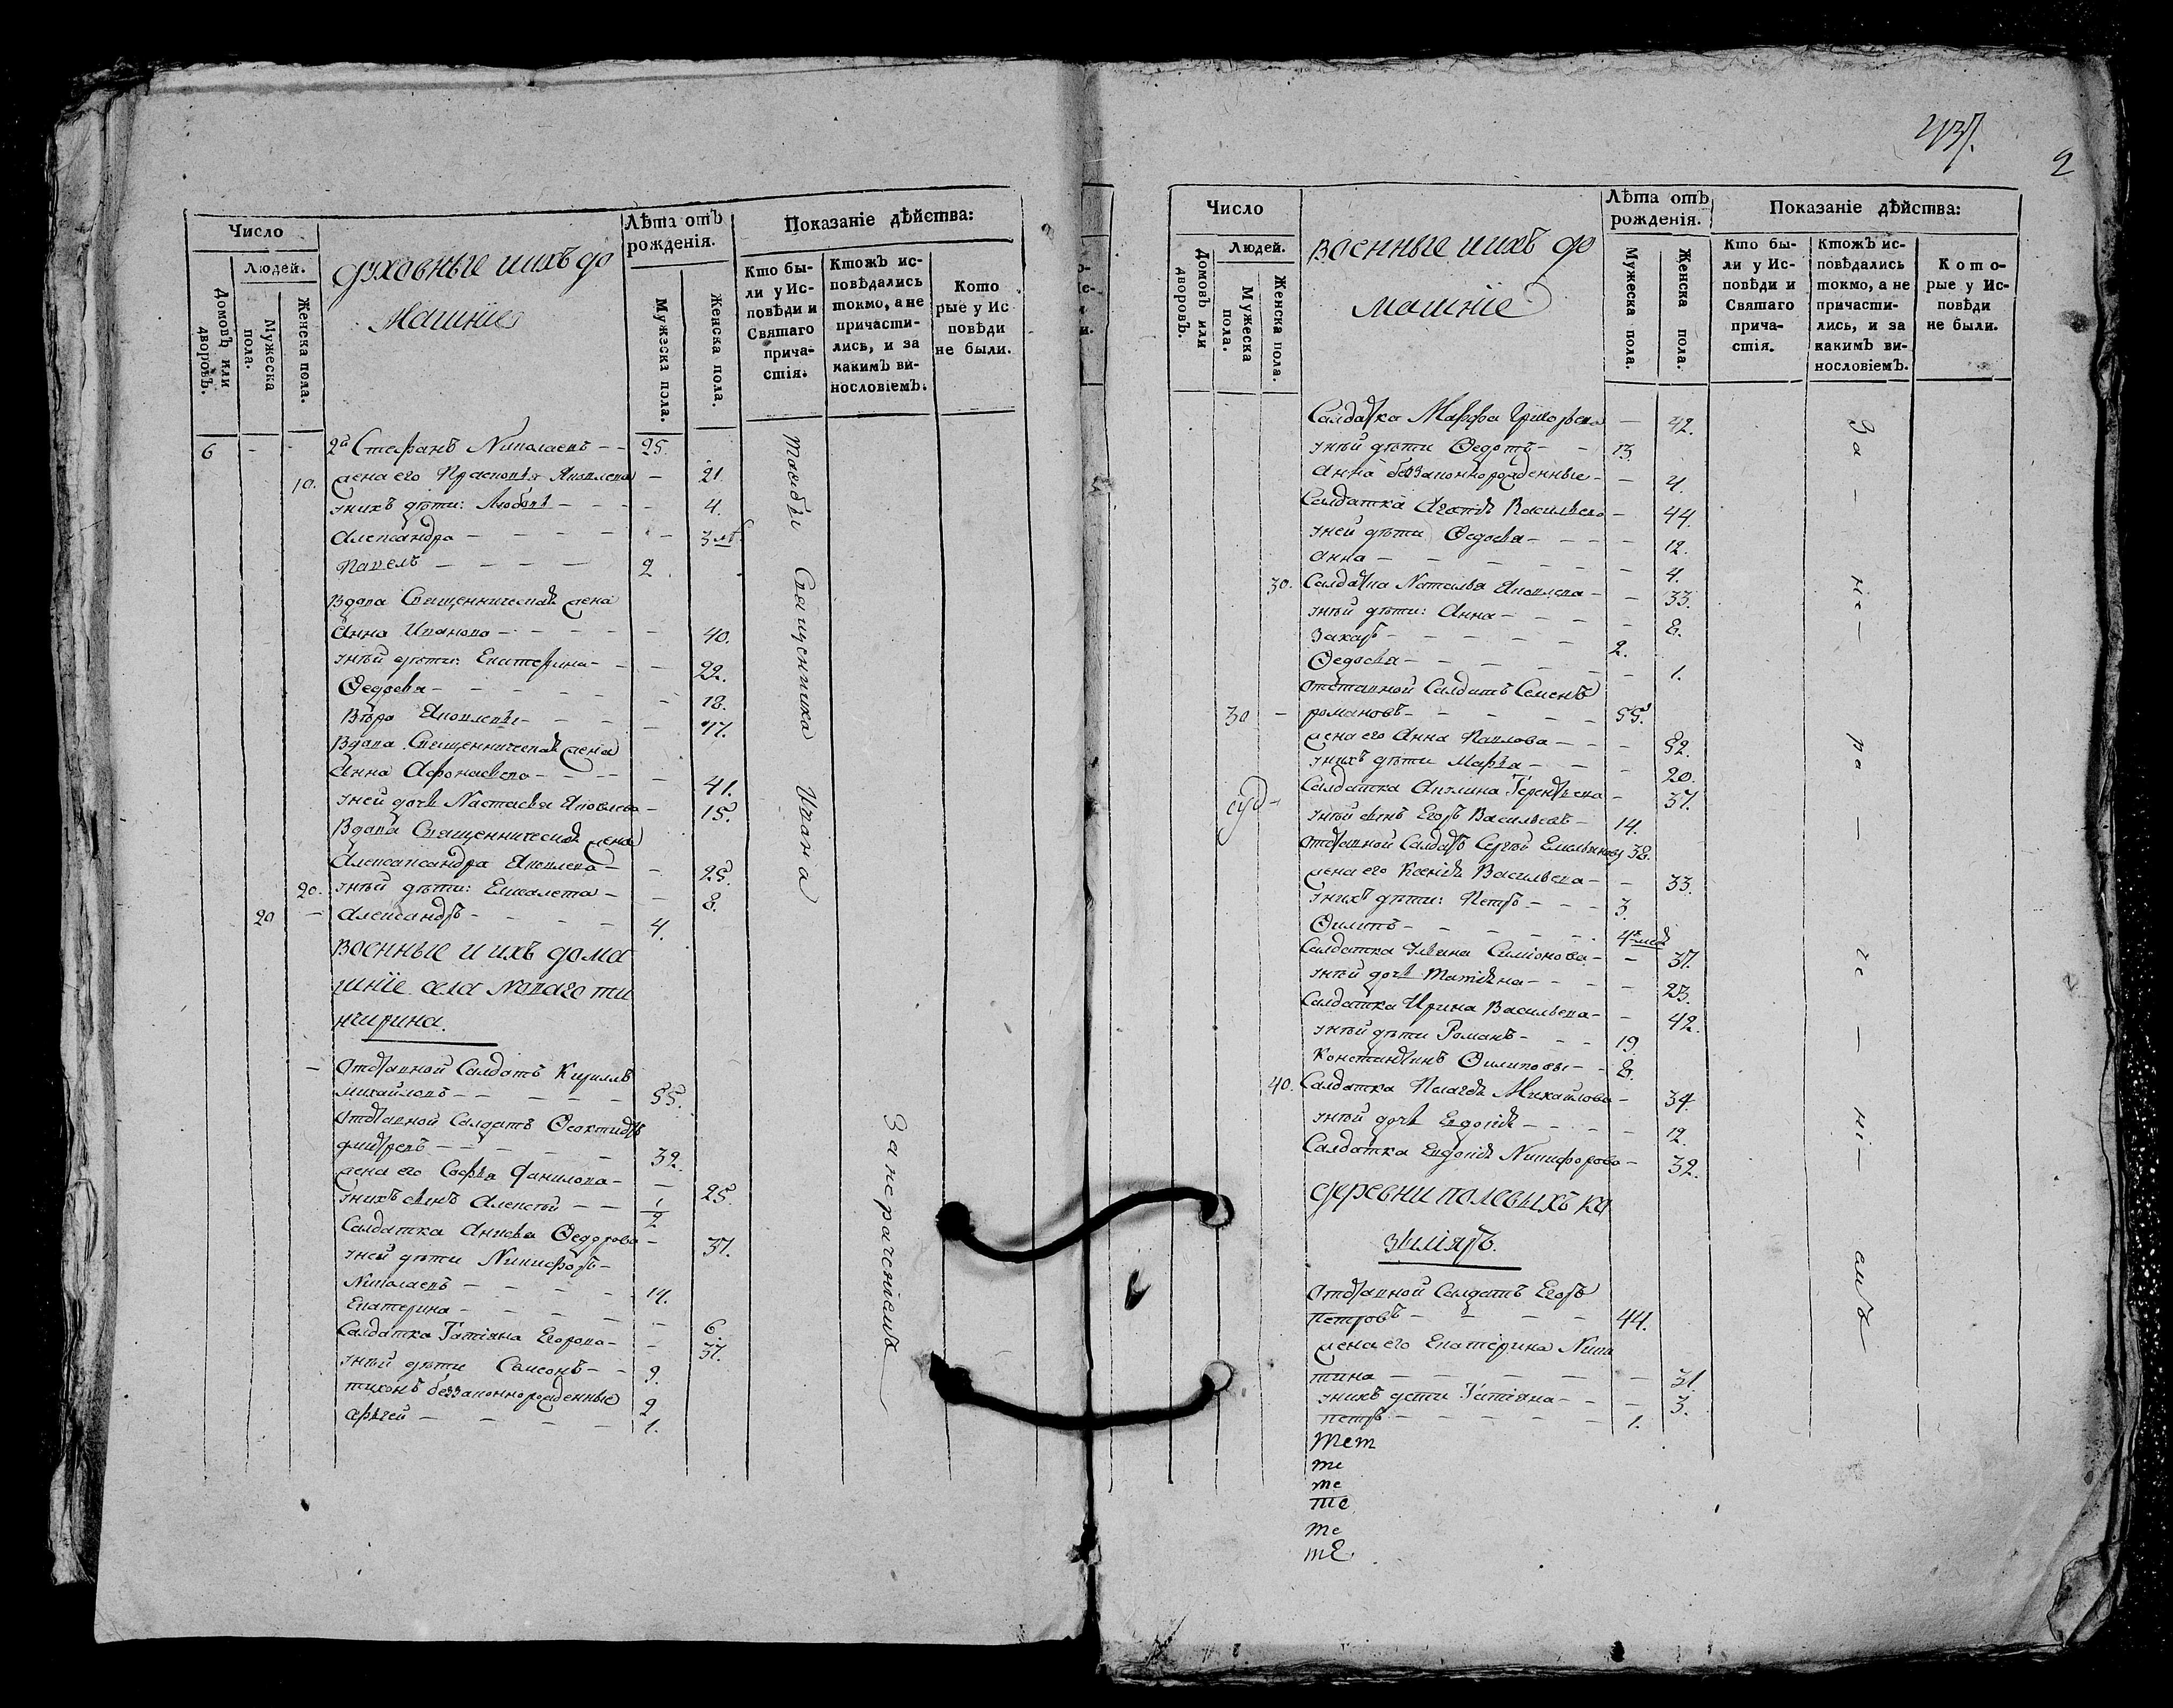 Число
Людей.
Домовъ или дворовъ.
Мужеска пола.
Женска пола.
духовные иихъ до
машніе
Лѣта отъ рожденія.
Мужеска пола.
Женска пола.
Показаніе дѣйства:
Кто бы-
ли у Ис-
повѣди и
Святаго
прича-
стія.
Ктожъ ис-
повѣдались
токмо, а не
причасти-
лись, и за
какимъ ви-
нословіемъ.
Кото
рые у Ис
повѣди
не были.
6 - - 2й Стефанъ Николаевъ - - 25.
10. жена его Прасковья Яковлева - 21
унихъ дѣти: Любовь - - - - 4.
Александра - - - - - 3
Павелъ - - - - 2.
Вдова Священническая жена
Анна Иванова - - - - - 40.
унѣй дѣти: Екатерина - - - 22.
Ѳедосья - - - - - - 18.
Вѣра Яковлевы - - - - 17.
Вдова Священническая жена
Анна Афонасьева - - - - - 41.
уней дочь Настасья Яковлева - 15.
Вдова Священническая жена
Александра Яковлева - - 25.
20. унѣй дѣти: Елисавета - - 8.
20 - Александръ - - - - - 4.
военные и ихъ дома
шніе села Новаго ти
нчурина.
- Отставной Салдатъ Кириллъ
михайловъ - - - - - 55.
Отставной Салдатъ Ѳеоктистъ
дмитревъ - - - - - 32.
жена его Софья Данилова - - 25.
унихъ сынъ Алексѣй - - 1/2
Салдатка Анисья Ѳедорова - 37.
уней дѣти Никифоръ -
Николаевъ - - - - - 14.
Екатерина - - - - - - 6.
Салдатка Татіяна Егорова - - 37.
унѣй дѣти Самсонъ - - 9.
тихонъ беззаконнорожденные 2
сѣргей - - - - 1.
тожъ
Священника
Ивана
За нераченіемъ
437.
2
Число
Людей.
Домовъ или дворовъ.
Мужеска пола.
Женска пола.
военные иихъ до
машніе
Лѣта отъ
рожденія.
Мужеска пола.
Женска пола.
Показаніе дѣйства:
Кто бы-
ли у Ис-
повѣди и
Святаго
прича-
стія.
Ктожъ ис-
повѣдались
токмо, а не
причасти-
лись, и за
какимъ ви-
нословіемъ.
Кото-
рые у Ис-
повѣди
не были.
Салдатка Марфа Григорьева - 42.
унѣй дѣти Ѳедотъ - - 13.
Анна беззаконнорожденные - - 4.
Салдатка Агафія Васильева - 44.
уней дѣти Ѳедосья - - - - 12.
Анна - - - - - - 4.
30. Салдатка Наталья Яковлева - - 33.
унѣй дѣти: Анна - - - - 8.
Захаръ - - - - - 2.
Ѳедосья - - - - - - 1.
Отставной Салдатъ Семенъ
30 - романовъ - - - - - 55.
жена его Анна Павлова - - - 52
унихъ дѣти Марья - - - 20.
Салдатка Акилина Терентьева - 37.
унѣй сынъ Егоръ Васильевъ - 14.
Отставной Салдатъ Сергѣй Емельяновъ 38.
жена его Ксенія Васильева - - 33.
унихъ дѣти: Петръ - - - 3.
Филипъ - - - - - 4
Салдатка Ульяна Симіонова - - 37.
унѣй дочь Татіяна - - - - 23.
Салдатка Ирина Васильева - - 42.
унѣй дѣти Романъ - - - 19.
Константинъ Филиповы - - 8.
40. Салдатка Пелагея Михайлова - 34.
унѣй дочь Евдокія - - - - 12.
Салдатка Евдокія Никифорова - 32.
деревни полевыхъ ко
зыляръ.
Отставной Салдатъ Егоръ
петровъ - - - - - 44.
жена его Екатерина Ники
тина - - - - - - 31
унихъ дѣти Татіяна - - - 3.
петръ - - - - - 1.
тет
те
те
те
те
те
За - не - ра - че - ні - емъ